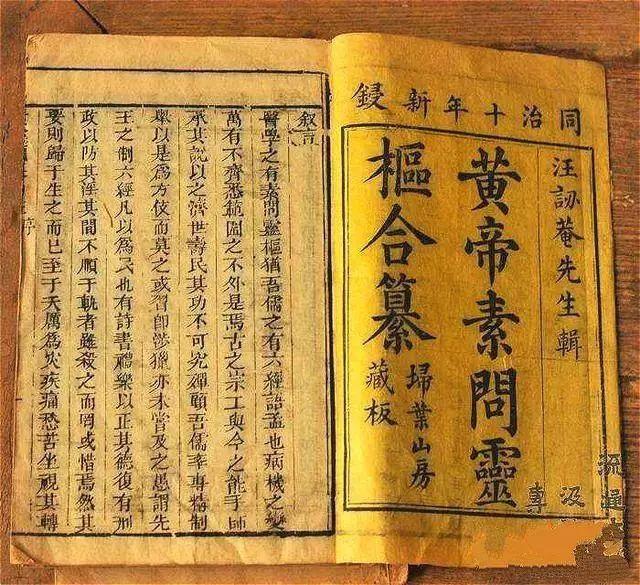 同治十年新鋟
汪訒菴先生輯
黃帝素問靈
樞合纂
掃葉山房
藏板
叙言
醫學之有素問靈樞猶吾儒之有六經語孟也病機之變
萬有不齊悉範圍之不外是焉古之宗工與今之能手師
承其說以之濟世壽民其功不可究殫顧吾儒率專精制
舉以是為方伎而莫之或習即涉獵亦未嘗及之愚謂先
王之制六經凡以為民也有詩書禮樂以正其德復有刑
政以防其淫其間不順于軌者雖殺之而罔或惜焉然其
要則歸于生之而已至于夭厲為災疾痛愁苦坐視其轉